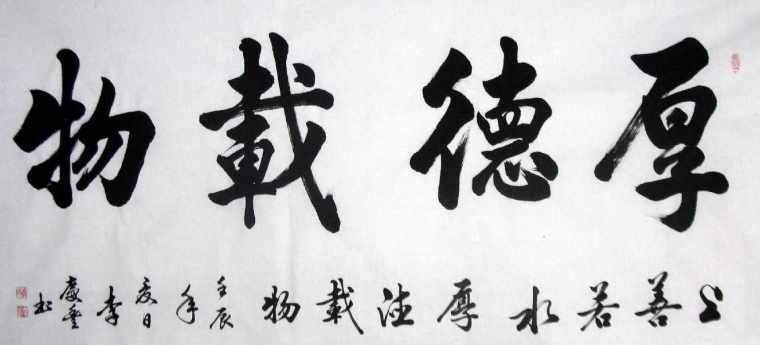 厚德載物
上善若水厚德載物壬辰年夏日李慶书